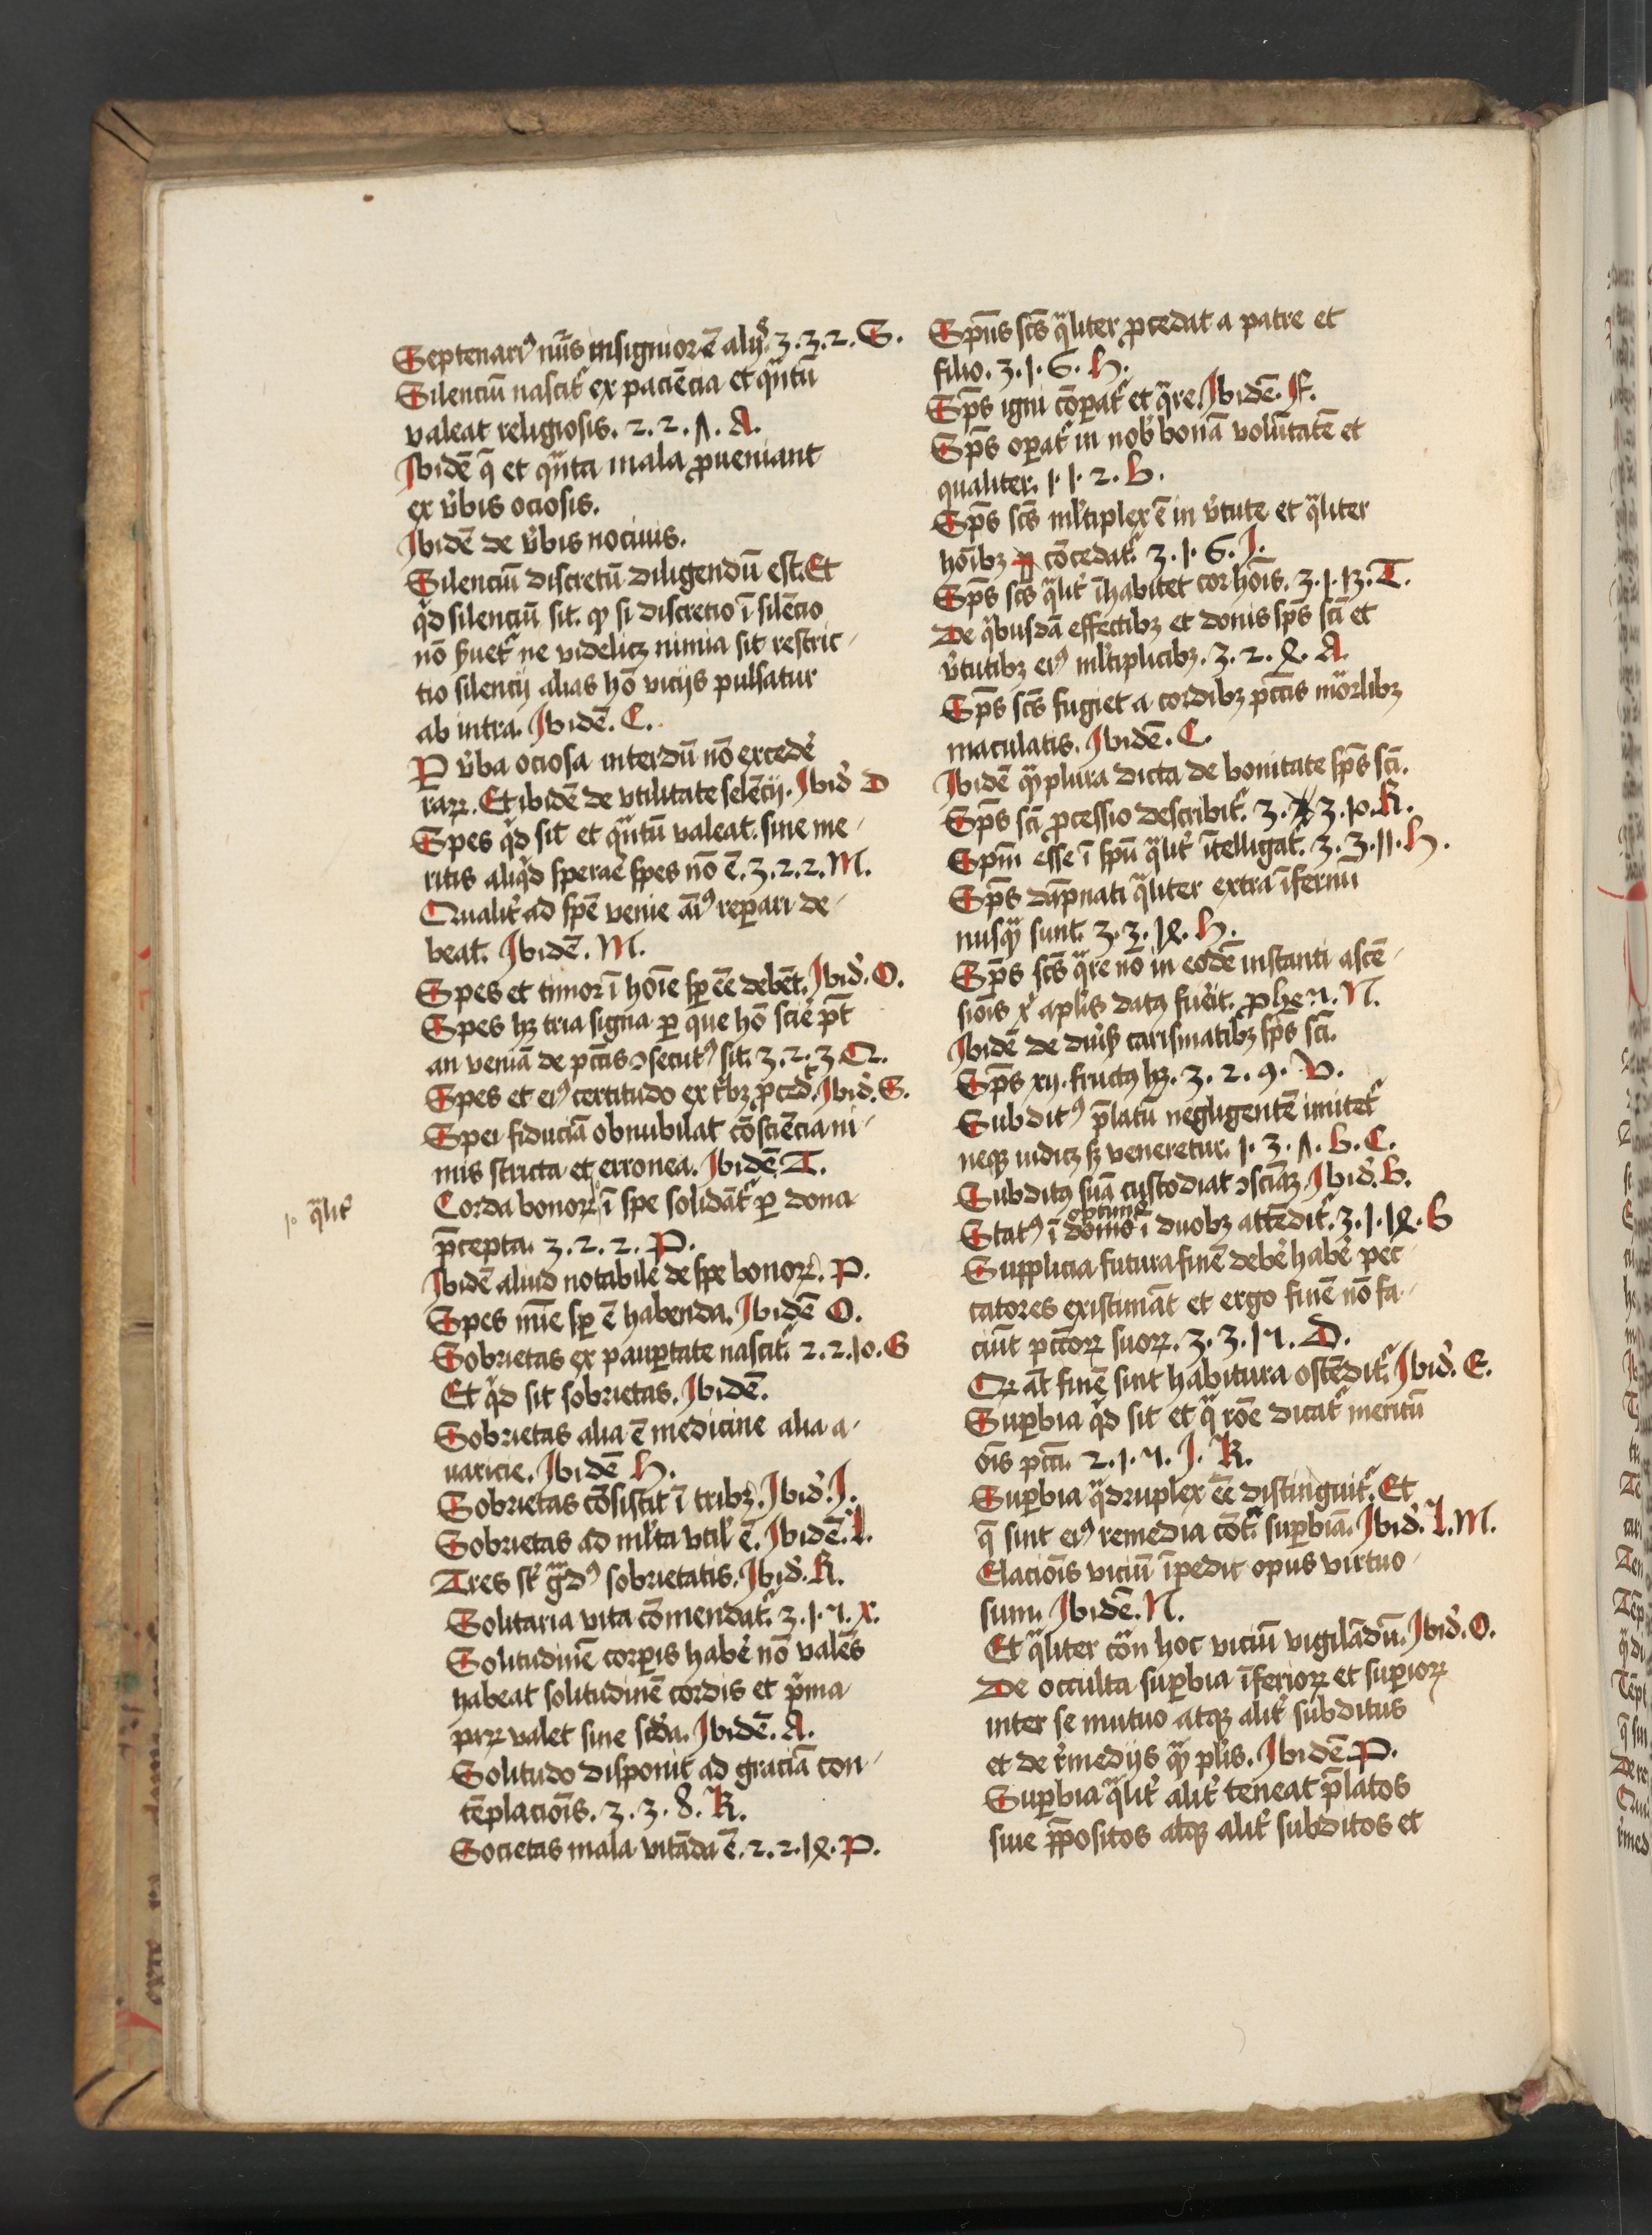 Septenariꝯ nūs insignior ē alijs. 3. 3. 2. G.
Silenciū nascit᷑ ex paciēcia et qͣntū
valeat religiosis. 2. 2. ʌ. A.
Ibidē q̄ et qͣnta mala ꝓueniant
ex v̉bis ociosis.
Ibidē de v̉bis nociuis.
Silenciū discretū diligendū est. Et
qͥd silenciū sit. ꝙ si discretio ī silēcio
nō ẜuet᷑ ne videlicꝫ nimia sit restric-
tio silencij alias hō vicijs pulsatur
ab intra. Ibidē. C.
P v̉ba ociosa interdū nō excedē
raꝝ. Et ibidē de vtilitate selēcij. Ibid̉ D
Spes qͥd sit et qͣntū valeat. sine me-
ritis aliqͥd sperare spes nō ē. 3. 2. 2. M.
Qualit̉ ad spē venie aīꝯ reꝑari de-
beat. Ibidē. M.
Spes et timor ī hoīe sꝑ eē debēt. Ibid̉. O.
Spes hꝫ tria signa ꝑ que hō scire pt̄
an veniā de pctīs ꝯsecutꝯ sit. 3. 2. 3. Q.
Spes et eiꝯ certitudo ex tͥbꝫ ꝓced̉t. Ibid̉. S.
Spei fiduciā obnubilat cōsciēcia ni-
mis stricta et erronea. Ibidē. T.
Corda bonoꝝ ī spe solidāt᷑ ꝑ dona
p̄cepta. 3. 2. 2. P.
Ibidē aliud notabile de spe bonoꝝ. P.
Spes nīīe sꝑ ē habenda. Ibidē O.
Sobrietas ex pauꝑtate nascit᷑. 2. 2. 10. G
Et qͥd sit sobrietas. Ibidē.
Sobrietas alia ē medicine alia a-
uaricie. Ibidē H.
Sobrietas cōsistit ī tribꝫ. Ibid̉. I.
Sobrietas ad ml̉ta vtil̉ ē. Ibidē. L.
Tres st̄ gͣdꝯ sobrietatis. Ibid̉. K.
Solitaria vita cōmendat᷑. 3. 1. 7. X.
Solitudinē corꝑis habē nō valēs
habeat solitudinē cordis et pͥma
paꝝ valet sine scd̉a. Ibidē. A.
Solitudo disponit ad graciā con-
tēplaciōis. 3. 3. 8. K.
Societas mala vitāda ē. 2. 2. 14. P.
qͣlit̉
Spūs scūs qͣliter ꝓcedat a patre et
filio. 3. 1. 6. H.
Spūs igni cōꝑat᷑ et qͣre. Ibidē. F.
Spūs oꝑat᷑ in nob̉ bonā volūtatē et
qualiter. 1. 1. 2. B.
Spūs scūs ml̉tiplex ē in v̉tute et qͣliter
hoībꝫ cōcedat᷑. 3. 1. 6. I.
Spūs scūs qͣlit̉ īhabitet cor hoīs. 3. 1. 13. T.
De qͥbusdā effectibꝫ et donis spūs scī et
v̉tutibꝫ eiꝯ ml̉tiplicibꝫ. 3. 2. 4. A.
Spūs scūs fugiet a cordibꝫ pctīs mōrlibꝫ
maculatis. Ibidē. C.
Ibidē qͣꝫplura dicta de bonitate spūs scī.
Spūs scī ꝓcessio describit᷑. 3. 3. 10. K.
Spm̄ esse ī spū qͣlit̉ ītelligat᷑. 3. 3. 11. H.
Spūs dāpnati qͣliter extra īfernū
nusqͣꝫ sunt. 3. 3. 14. H.
Spūs scūs qͣre nō in eodē instanti ascē-
siōis xͥ apl̉is datꝯ fuerit. ꝓhe 7. N.
Ibidē de diủẜ carismatibꝫ spūs scī.
Spūs xij. fructꝯ hꝫ. 3. 2. 9. V.
Subditꝯ p̄latū negligentē imitet᷑
neqꝫ iudicꝫ sꝫ veneretur. 1. 3. ʌ. B. C.
Subditꝯ suā custodiat ꝯsciāꝫ. Ibid̉. B.
Statꝯ ī domo optimꝯ ī duobꝫ attēdit᷑. 3. 1. 14. B
Supplicia futura finē debē habē pec
catores existimāt et ergo finē nō fa-
ciūt pctōꝝ suoꝝ. 3. 3. 17. D.
Qꝫ at̄ finē sint habitura ostēdit᷑. Ibid̉. E.
Suꝑbia qͥd sit et qͣ rōe dicat᷑ meritū
oīs pctī. 2. 1. 7. I. K.
Suꝑbia qͣdruplex eē distinguit᷑. Et
q̄ sint eiꝯ remedia cōtͣ suꝑbiā. Ibid̉. L. M.
Elaciōis viciū īpedit opus virtuo-
sum. Ibidē. N.
Et qͣliter cōtͣ hoc viciū vigilādū. Ibid̉. O.
De occulta suꝑbia īferioꝝ et suꝑioꝝ
inter se mutuo atqꝫ alit̉ subditus
et de r̉mediys qͣꝫ pl̉is. Ibidē. P.
Suꝑbia qͣlit̉ alit̉ teneat p̄latos
siue p̄positos atqꝫ alit̉ subditos et